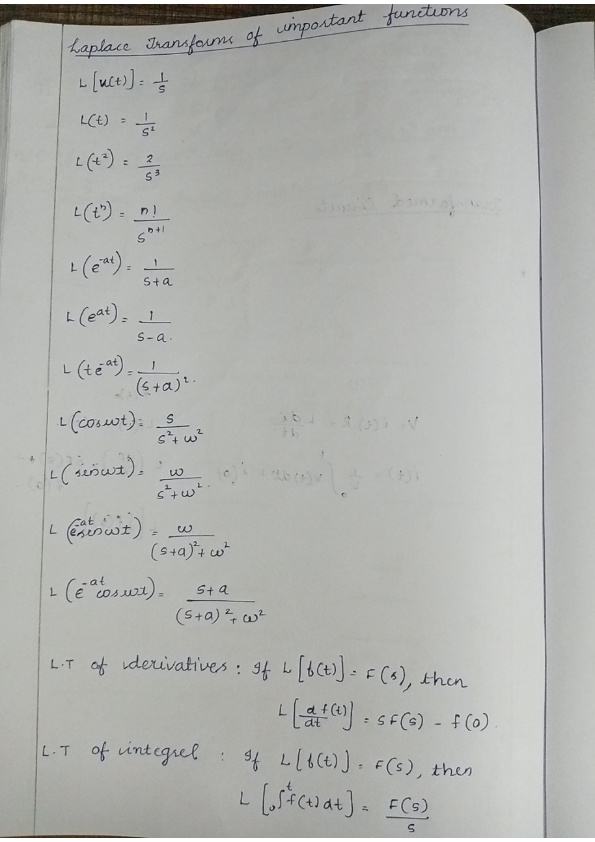 Laplace Transforms of important functions
L[u(t)] = 1/s
L(t) = 1/s²
L(t²) = 2/s³
L(tⁿ) = n!/sⁿ⁺¹
L(e⁻ᵃᵗ) = 1/(s+a)
L(eᵃᵗ) = 1/(s-a).
L(te⁻ᵃᵗ) = 1/(s+a)².
L(cosωt) = s/(s²+ω²)
L(sinωt) = ω/(s²+ω²).
L(e⁻ᵃᵗsinωt) = ω/((s+a)²+ω²)
L(e⁻ᵃᵗcosωt) = (s+a)/((s+a)²+ω²)
L.T of derivatives : If L[f(t)] = F(s), then
L[d f(t)/dt] = sF(s) - f(0).
L.T of integrel : If L[f(t)] = F(s), then
L[₀∫ᵗf(t)dt] = F(s)/s